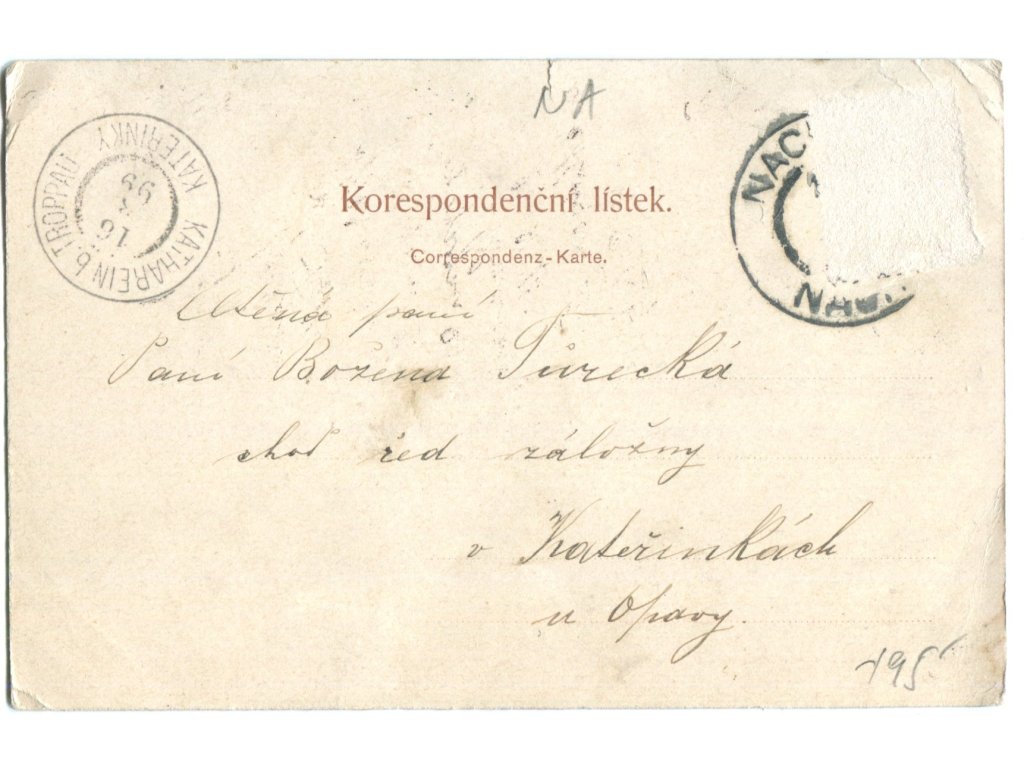 NA
KATHAREIN b. TROPPAU
KATEŘINKY
16
99
NACH
NÁCH
Korespondenční lístek.
Correspondenz-Karte.
Ctěná paní
Paní Božena Tůrecká
choť řed záložny
v Kateřinkách
u Opavy.
195